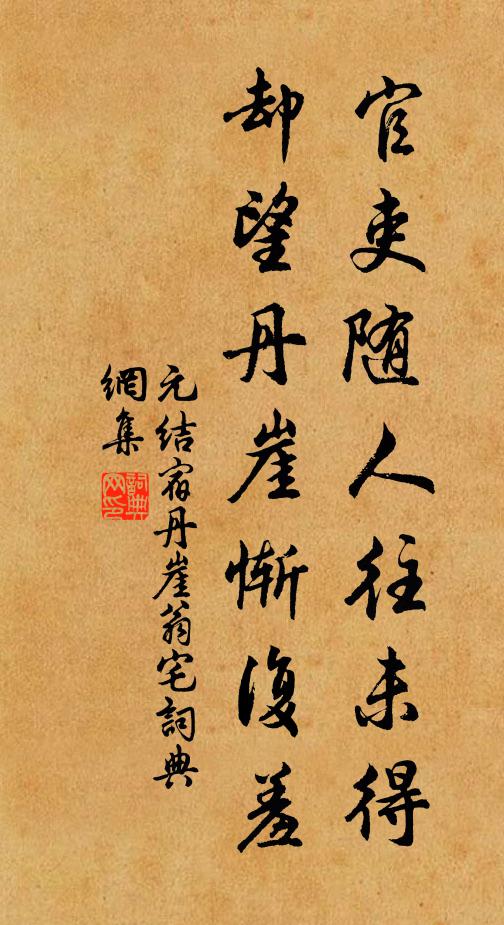 官吏随人往未得
却望丹崖慚復羞
元結宿丹崖翁宅詞典
網集
詞典
网印